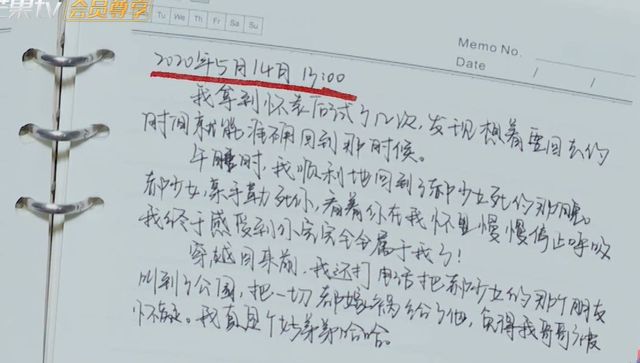 芒果TV
会员尊享
Tu We Th Fr Sa Su
Memo No.
Date / /
2020年5月14日 13:00
我拿到怀表后试了几次，发现想着要回去的
时间就能准确回到那时候。
午睡时，我顺利地回到了郝少女死的那晚。
郝少女，亲手勒死你，看着你在我怀里慢慢停止呼吸
我终于感受到你完完全全属于我了！
穿越回来前，我还打电话把郝少女的那个朋友
叫到了公园，把一切都嫁祸给了他，免得我哥哥被
怀疑。我真是个好弟弟哈哈。